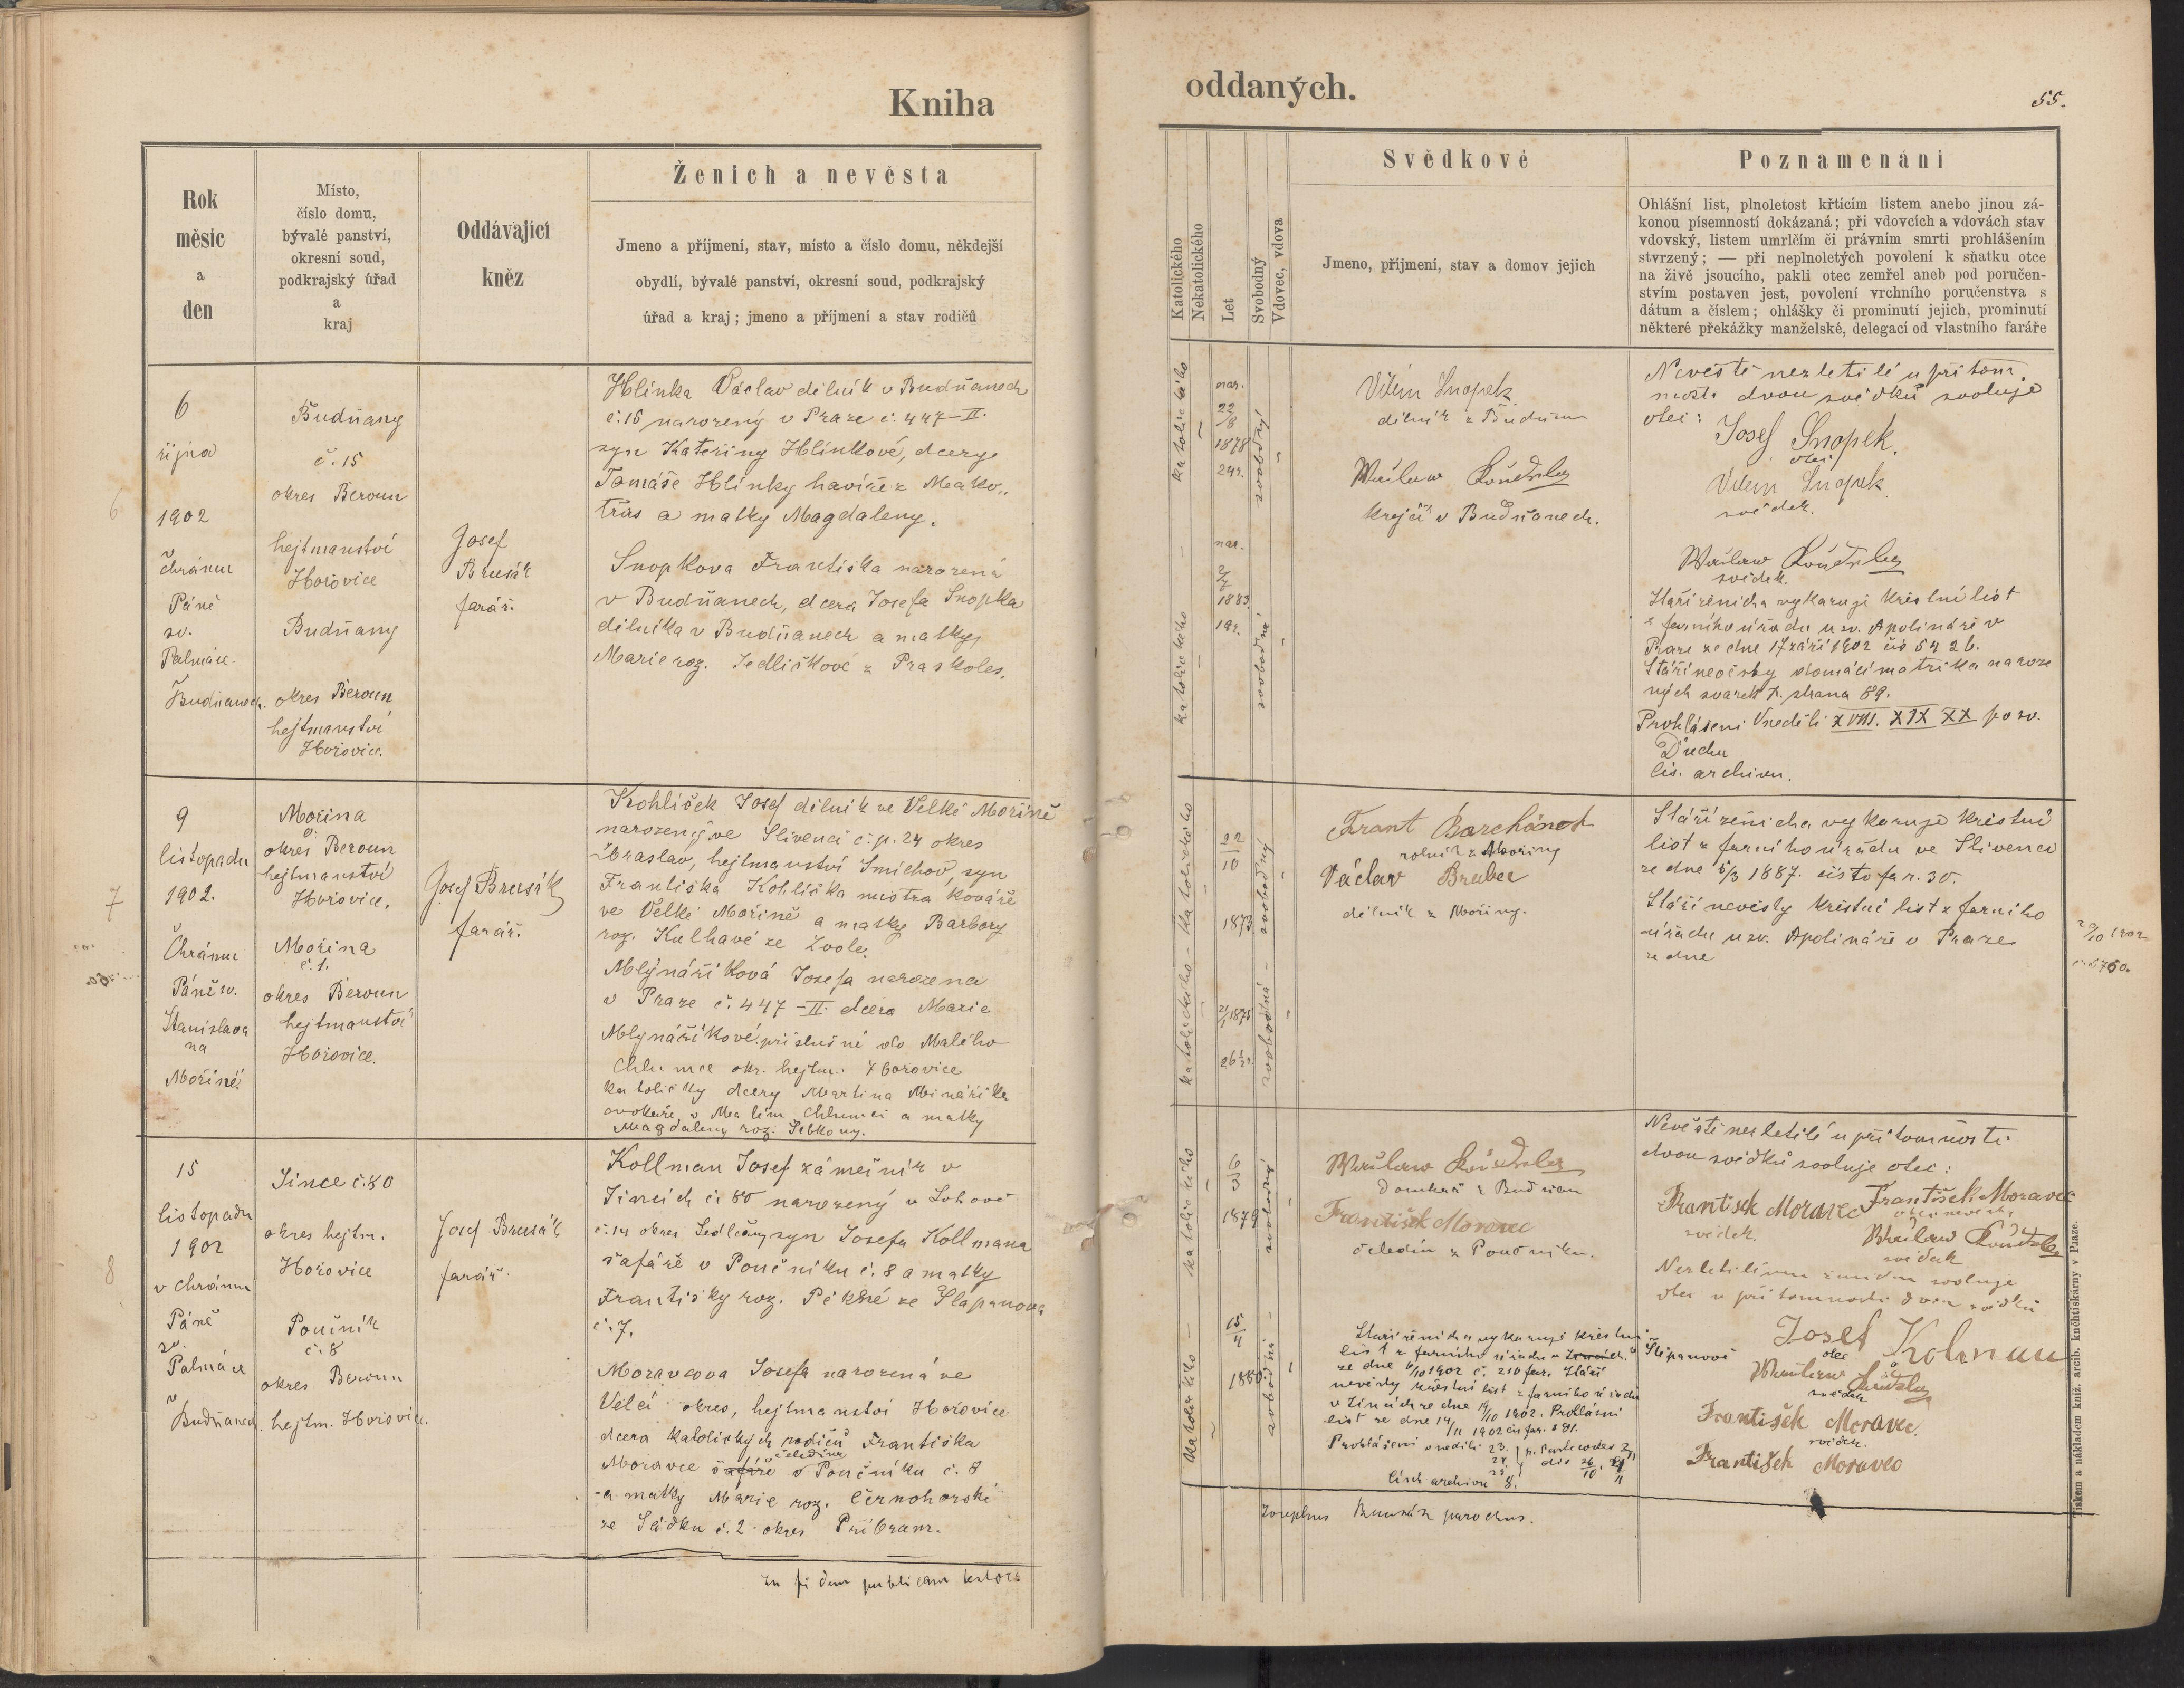 Kniha
oddaných.
55.
Rok
měsíc
a
den
Místo,
číslo domu,
bývalé panství,
okresní soud,
podkrajský úřad
a
kraj
Oddávající
kněz
Ženich a nevěsta
Jmeno a příjmení, stav, místo a číslo domu, někdejší
obydlí, bývalé panství, okresní soud, podkrajský
úřad a kraj; jmeno a příjmení a stav rodičů
Katolického
Nekatolického
Let
Svobodný
Vdovec, vdova
Svědkové
Jmeno, příjmení, stav a domov jejich
Poznamenání
Ohlášní list, plnoletost křtícím listem anebo jinou zá-
konou písemností dokázaná; při vdovcích a vdovách stav
vdovský, listem umrlčím či právním smrti prohlášením
stvrzený; — při neplnoletých povolení k sňatku otce
na živě jsoucího, pakli otec zemřel aneb pod poručen-
stvím postaven jest, povolení vrchního poručenstva s
dátum a číslem; ohlášky či prominutí jejich, prominutí
některé překážky manželské, delegací od vlastního faráře
6
6
října
1902
Chrámu
Páně
sv.
Palmáce
Budňanech.
Budňany
č. 15
okres Beroun
hejtmanství
Hořovice
Budňany
okres Beroun
hejtmanství
Hořovice.
Josef
Brusák
farář.
Hlinka Václav dělník v Budňanech
č. 15 narozený v Praze č. 447-II.
syn Kateřiny Hlinkové, dcery
Tomáše Hlinky havíře z Mako„
třas a matky Magdaleny.
Snopkova Františka narozená
v Budňanech, dcera Josefa Snopka
dělníka v Budňanech a matky
Marie roz. Jedličkové z Praskoles.
katolického
svobodný
nar.
22
/8
1878
24 r.
katolického
svobodná
nar.
2/7
1883
19 r.
Vilém Snopek
dělník z Budňan
krejčí v Budňanech.
Nevěstě nezletilé u přítom
nosti dvou svědků svoluje
otec:
Josef Snopek.
otec
Vilém Snopek
svědek.
svědek.
Stáří ženicha vykazuje křestní list
z farního úřadu u sv. Apolináře v
Praze ze dne 17 září 1902 čís 5426.
Stáří nevěsty domácí matrika naroze
ných svazek X. strana 89.
Prohlášeni V neděli XVIII. XIX XX po sv.
Duchu
čís. archivu.
7
9
listopadu
1902.
Chrámu
Páně sv.
Stanislava
na
Mořině
Mořina
okres Beroun
hejtmanství
Hořovice.
Mořina
č. 1.
okres Beroun
hejtmanství
Hořovice.
Josef Brusák
farář.
Kohlíček Josef dělník ve Velké Mořině
narozený ve Slivenci č. p. 24 okres
Zbraslav, hejtmanství Smíchov, syn
Františka Kohlíčka mistra kováře
ve Velké Mořině a matky Barbory
roz. Kulhavé ze Zvole.
Mlynáříková Josefa narozena
v Praze č. 447-II. dcera Marie
Mlynáříkové příslušné do Malého
Chlumce okr. hejtm. Hořovice
katoličky dcery Martina Mináříka
v Malém Chlumci a matky
Magdaleny roz.
katolického
svobodný
22
10
1873
katolického
svobodná
1875
26½ r.
Frant Barchánek
rolník z Mořiny
Václav Brabec
dělník z Mořiny.
Stáří ženicha vykazuje křestní
list z farního úřadu ve Slivenci
ze dne 5/3 1887. čísto far. 30.
Stáří nevěsty křestní list z farního
úřadu u sv. Apolináře v Praze
ze dne
20/10 1902
8
15
listopadu
1902
v chrámu
Páně
sv.
Palmáce
v
Budňanech
Jince č. 80
okres hejtm.
Hořovice
Poučník
č. 8
okres Beroun
hejtm. Hořovice.
Josef Brusák
farář.
Kollman Josef zámečník v
Jincích č. 80 narozený v
č. 14 okres Sedlčany syn Josefa Kollmana
šafáře v Poučníku č. 8 a matky
Františky roz. Pěkné ze Štěpánova
č. 7.
Moravcova Josefa narozená ve
Velcí okres, hejtmanství Hořovice
dcera katolických rodičů Františka
čeledína
Moravce šafáře v Poučníku č. 8
a matky Marie roz. Černohorské
ze Sádku č. 2 okres Příbram.
katolického
svobodný
6
3
1879
katolického
svobodná
15
4
1880
domkář z Budňan
František Moravec
čeledín z Poučníku.
Stáří ženicha vykazuje křestní
list z farního úřadu v Štěpánově
ze dne 6/10 1902 č. 210 far. Stáří
nevěsty křestní list z farního úřadu
v Jincích ze dne 14/10 1902. Prohlášní
list ze dne 14/11 1902 čís far. 891.
Prohlášeni v neděli 23.
čísl archivu 8.
Nevěstě nezletilé u přítomnosti
dvou svědků svoluje otec:
František Moravec
otec nevěsty
František Moravec
svědek.
svědek
Nezletilému ženichu svoluje
otec v přítomnosti dvou svědků
Josef Kolman
otec
svědek
František Moravec.
svědek.
František Moravec
In fidem publicam testor
Josephus Brusák parochus.
Tiskem a nákladem kníž. arcib. knihtiskárny v Praze.